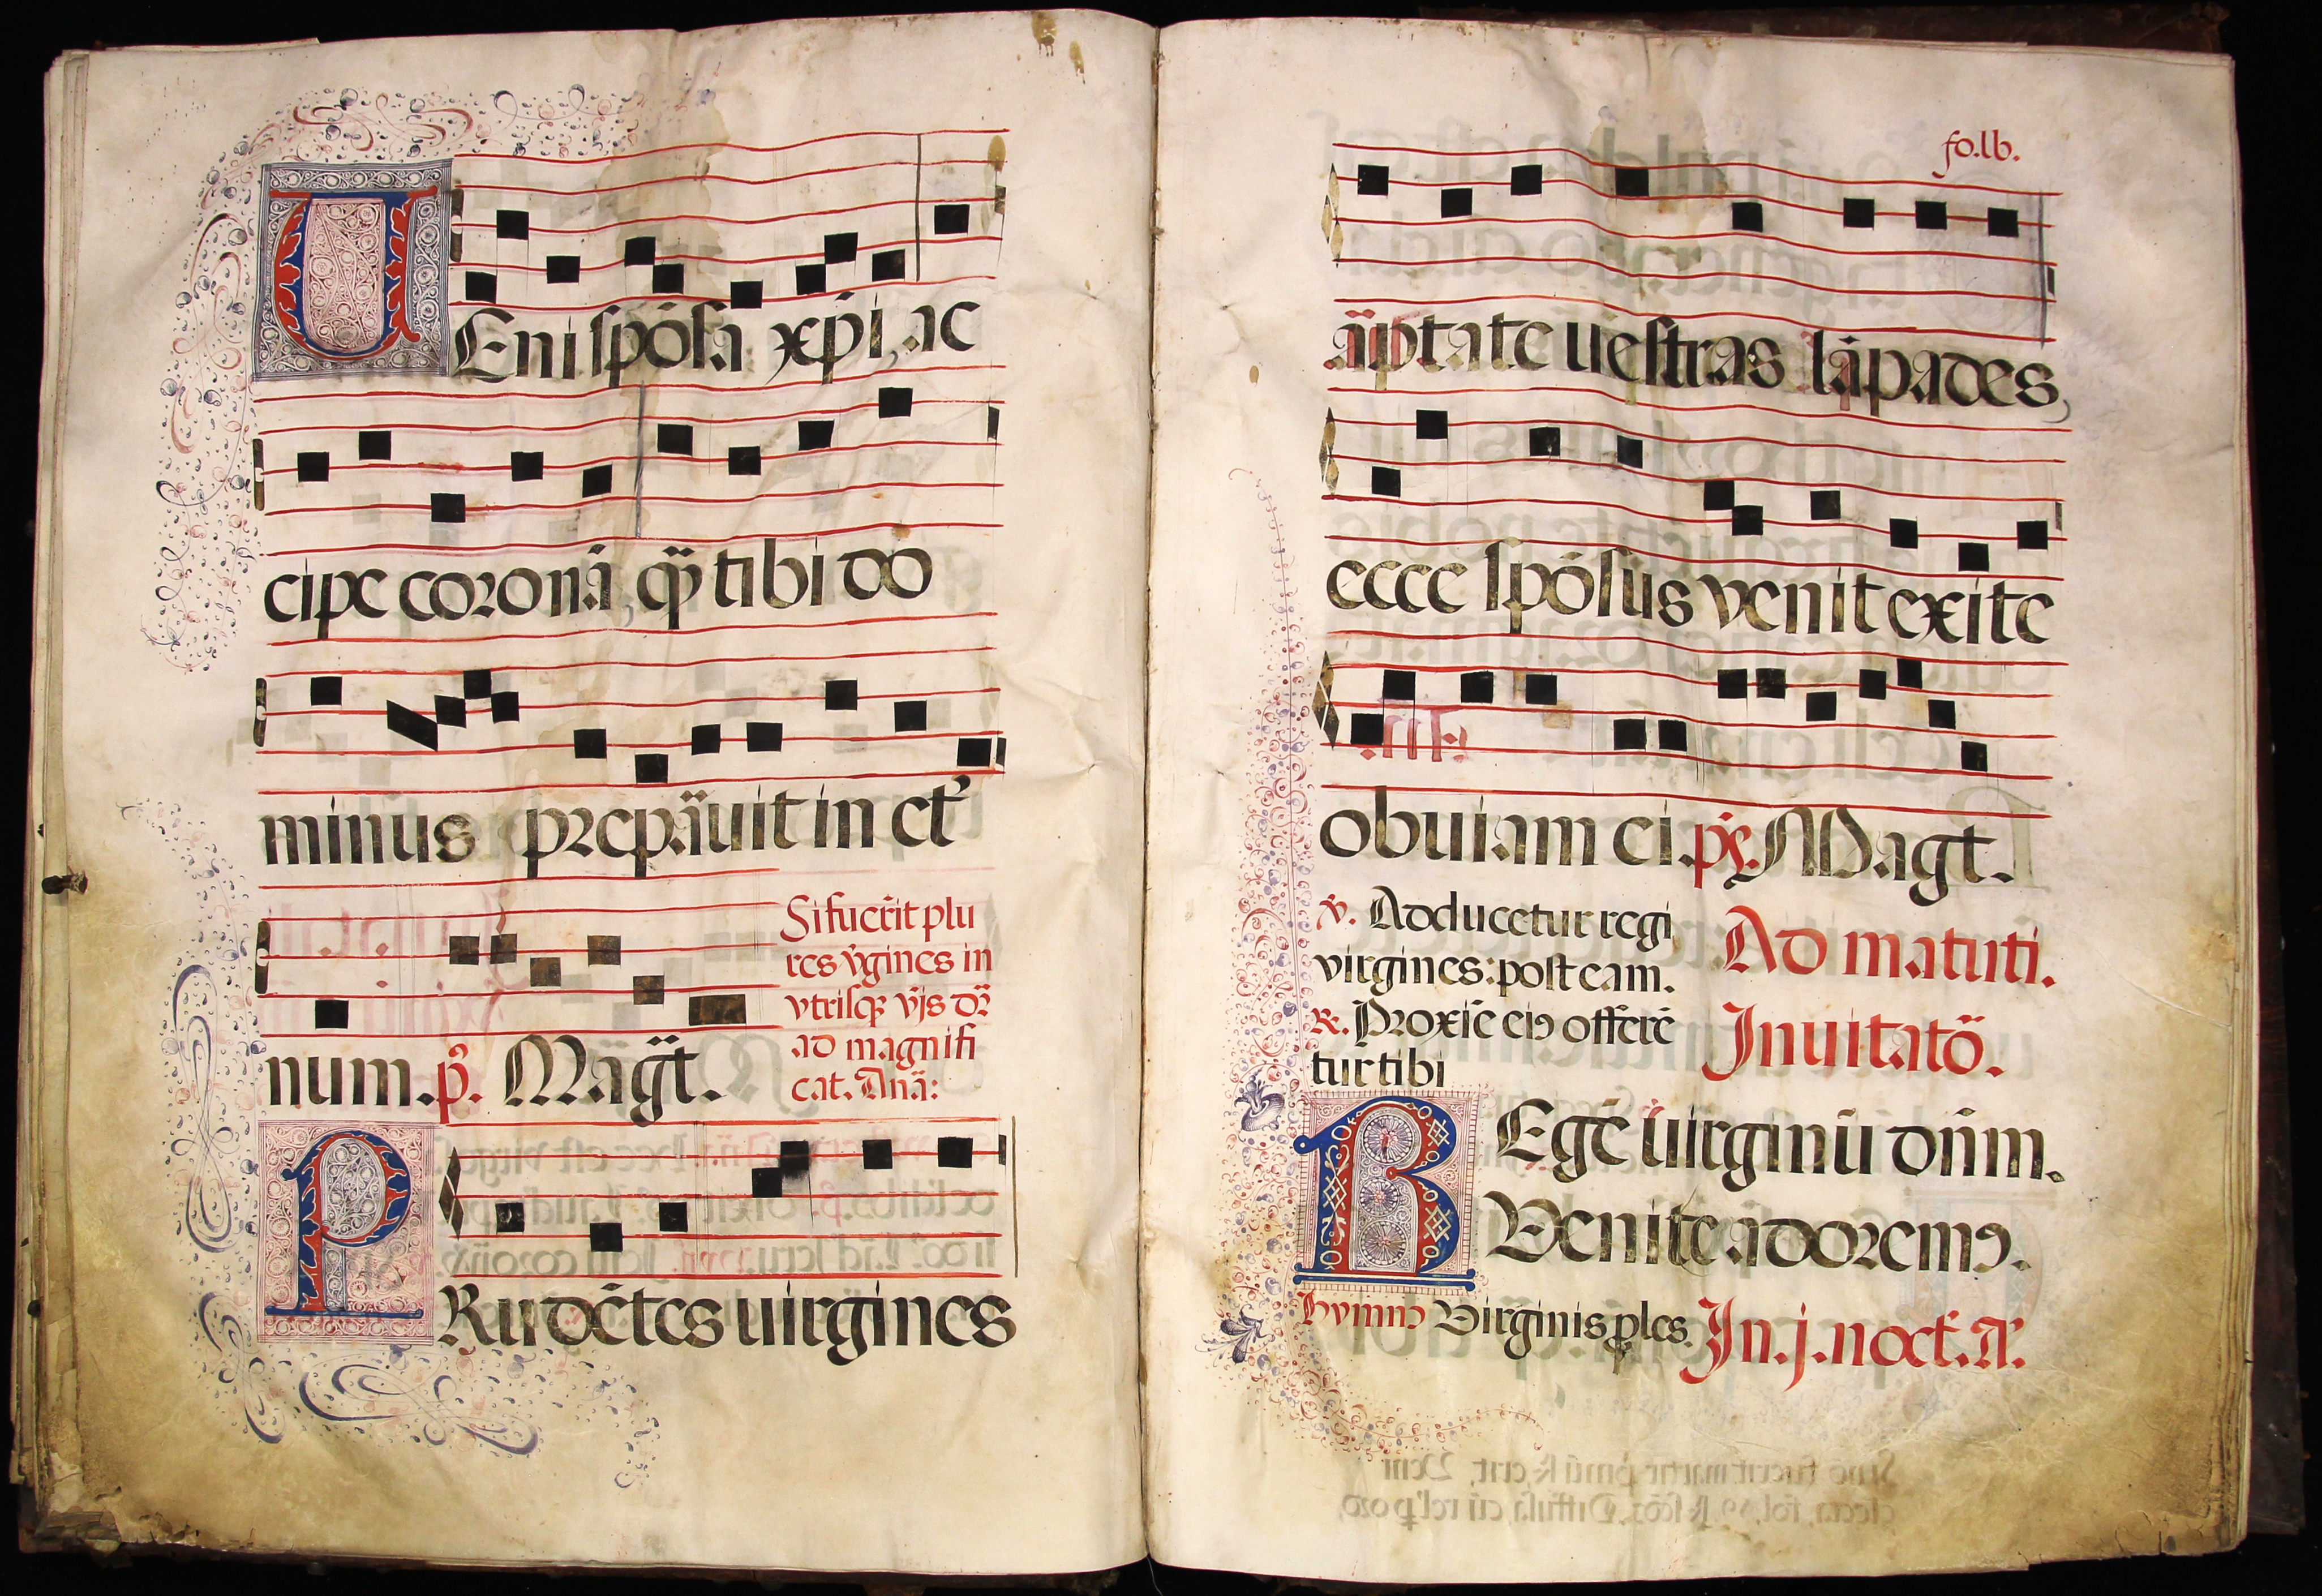 UEni spōsa xp̄i, ac
cipe coronā, q̄ȝ tibi do
minus prepāuit in et̄
num. p̄. Maḡt.
Si fuer̄it plu
res v̄gines in
vtrisqȝ v̄js dr̄
ad magnifi
cat. Anā:
PRudētes uirgines
fo.lb.
āptate uestras lāpades,
ecce spōsus venit exite
obuiam ei. p̄s. Magt.
v̄. Adducetur regi
virgines: post eam.
R. Proxīe eiꝰ offerē
tur tibi
Ad matuti.
Inuitatō.
REgē uirginū dn̄m.
Venite adoremꝰ.
hymnꝰ Virginis ꝓles. In.j.noct̄. A.